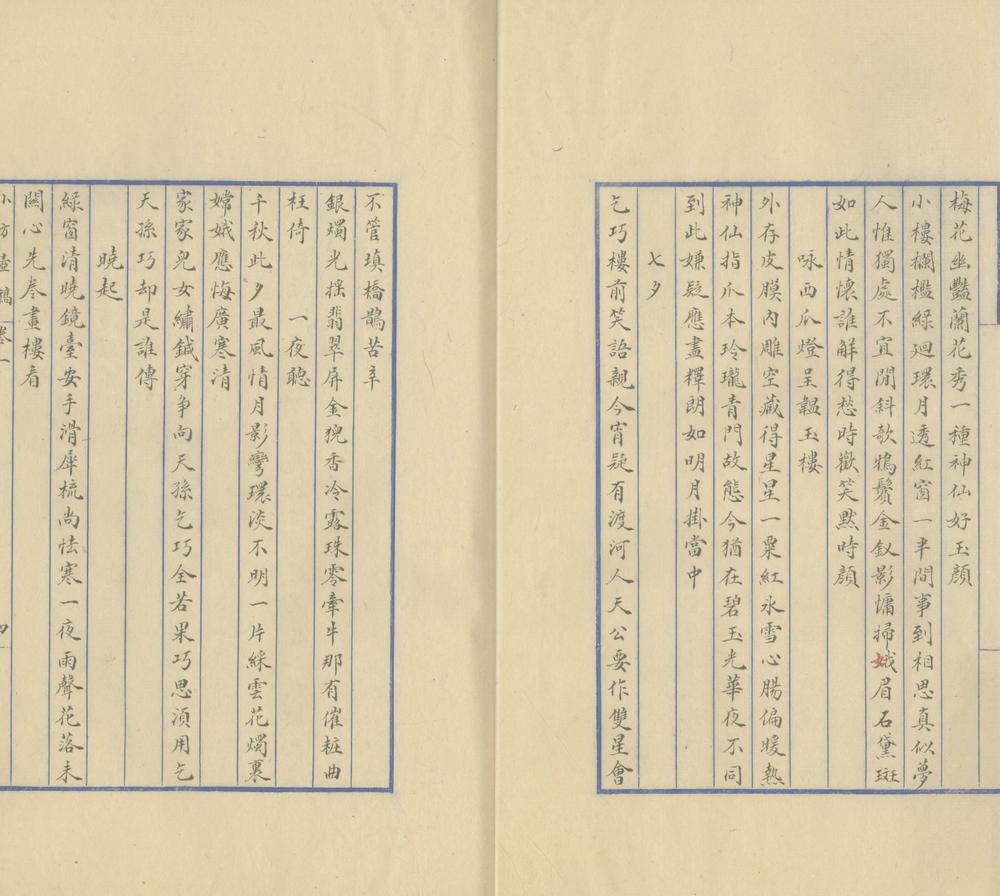 梅花幽豔蘭花秀一種神仙好玉顔
小樓欄檻綠廻環月透紅窗一半間事到相思真似夢
人惟獨處不宜閒斜歌鴉鬢金釵影慵掃娥眉石黛斑
如此情懷誰解得愁時歡笑黙時顔
咏西瓜燈呈韞玉樓
外存皮膜內雕空藏得星星一粟紅氷雪心腸偏暖熱
神仙指爪本玲瓏青門故態今猶在碧玉光華夜不同
到此嫌疑應盡釋朗如明月掛當中
七夕
乞巧樓前笑語親今宵疑有渡河人天公要作雙星會
不管填橋鵲苦辛
銀燭光搖翡翠屏金猊香冷露珠零牽牛那有催粧曲
枉倚　一夜聽
千秋此夕最風情月影彎環淡不明一片綵雲花燭裏
嫦娥應悔廣寒清
家家兒女繡鍼穿争向天孫乞巧全若果巧思湏用乞
天孫巧却是誰傳
曉起
綠窗清曉鏡臺安手滑犀梳尚怯寒一夜雨聲花落未
關心先卷畫樓看
小方壺稿 卷一 四